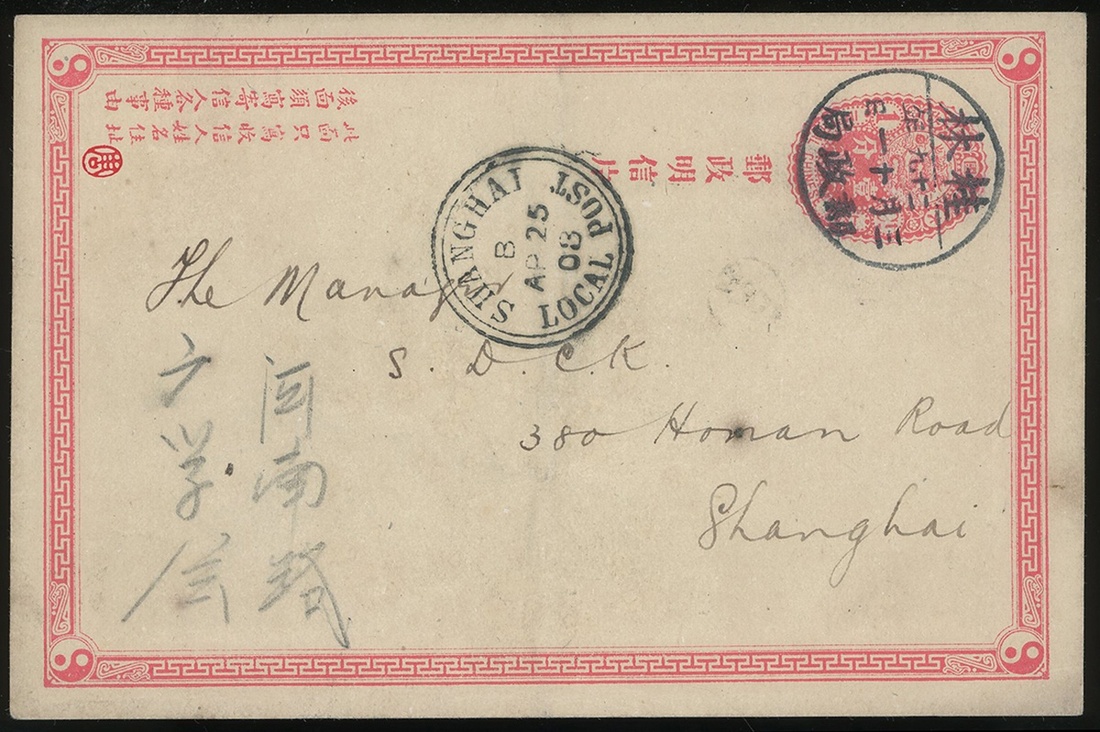 郵政明信片
此面只寫收信人姓名住址
後面須寫寄信人各種事由
桂林
三月十一日
郵政局
SHANGHAI LOCAL POST
B
AP 25
08
The Manager
S. D. C. K.
380 Honan Road
Shanghai
河南路
广学会